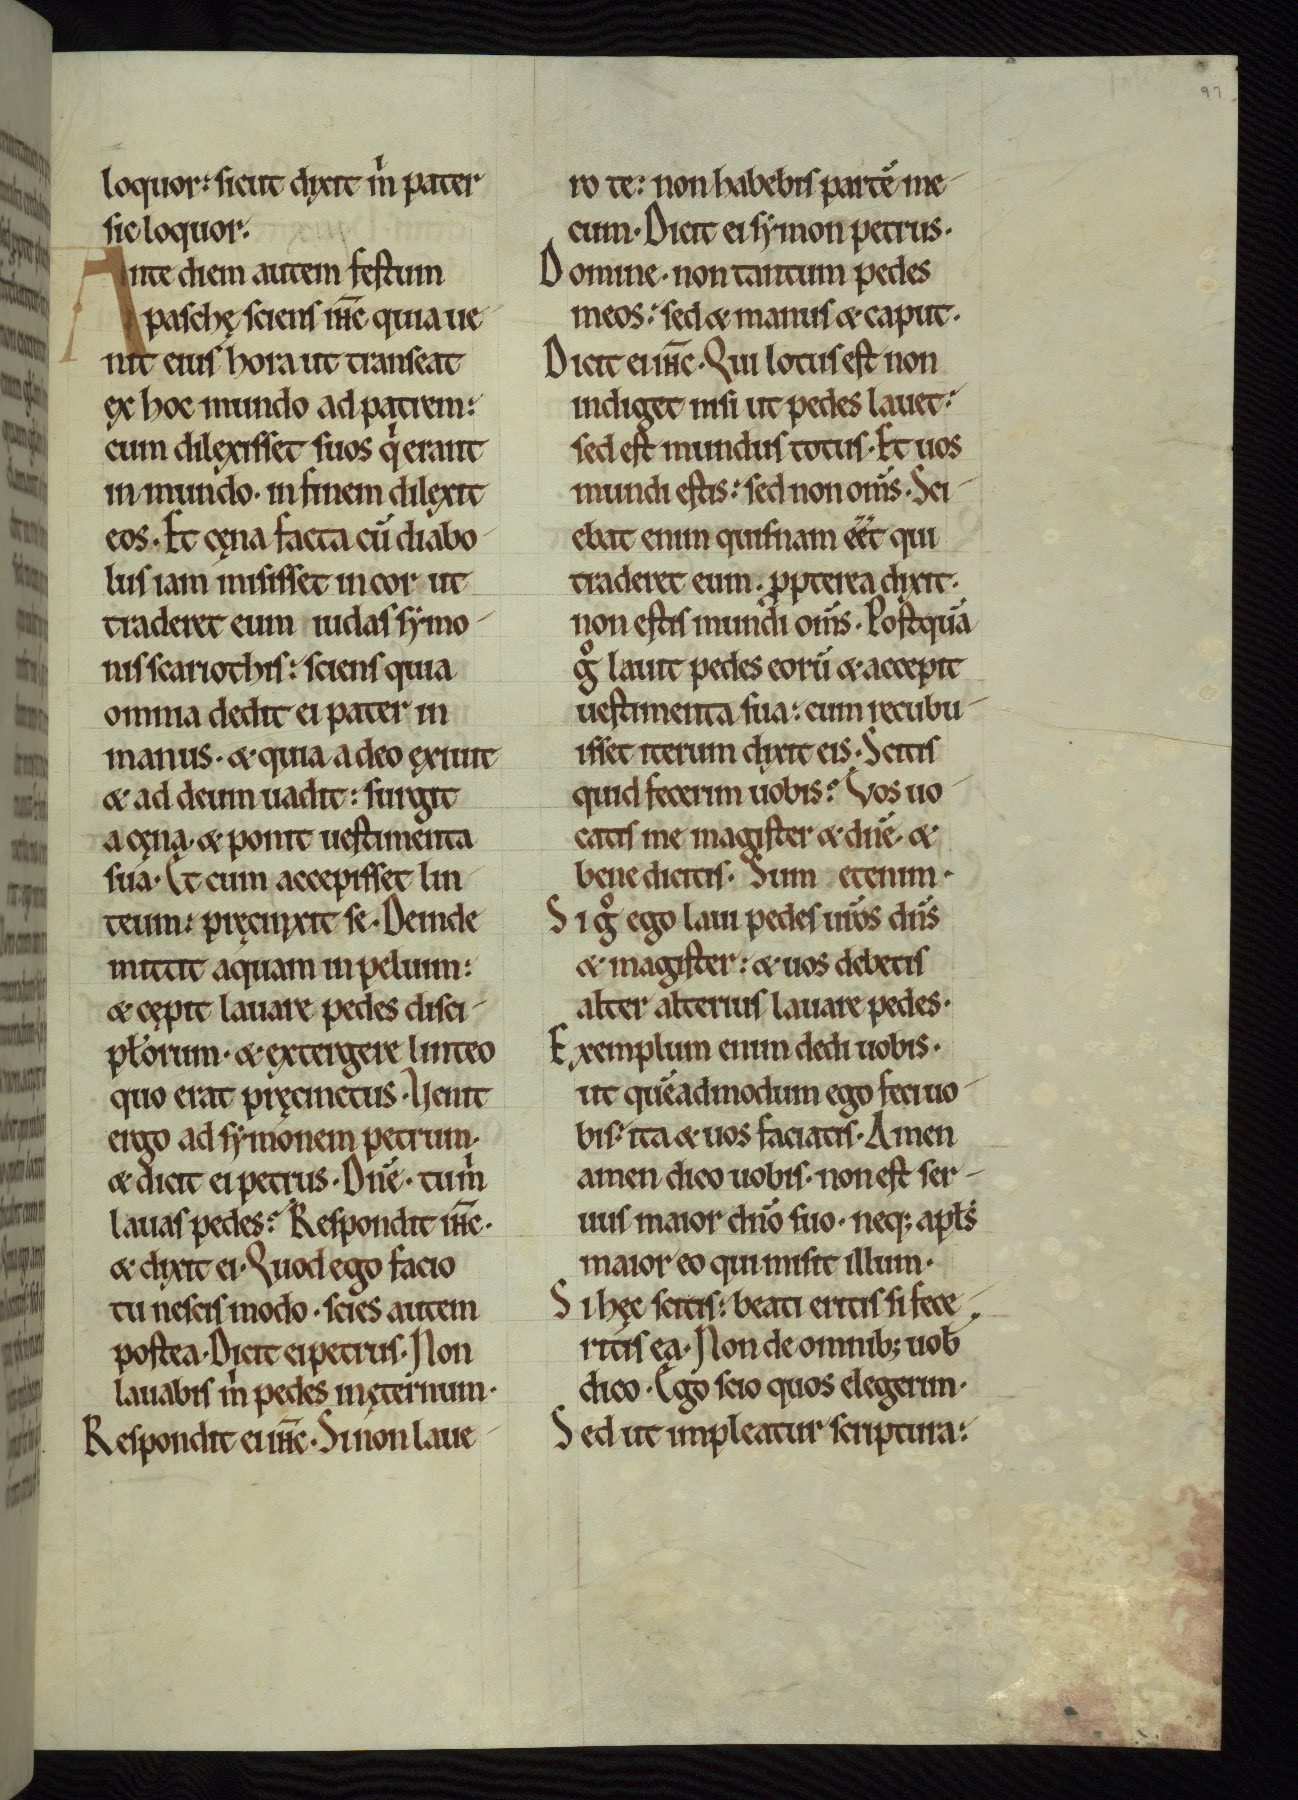 97
loquor: sicut dixit m̄ pater
sic loquor.
Ante diem autem festum
paschę sciens ih̄c quia ue-
nit eius hora ut transeat
ex hoc mundo ad patrem:
cum dilexisset suos q̍ erant
in mundo. in finem dilexit
eos. Et cęna facta cū diabo-
lus iam misisset in cor ut
traderet eum iudas symo-
nis scariothis: sciens quia
omnia dedit ei pater in
manus. & quia a deo exiuit
& ad deum uadit: surgit
a cęna. & ponit uestimenta
sua. Et cum accepisset lin
teum: pręcinxit se. Deinde
mittit aquam in peluim:
& cępit lauare pedes disci-
pl̄orum. & extergere linteo
quo erat pręcinctus. Uenit
ergo ad symonem petrum.
& dicit ei petrus. Dn̄e. tu m̍
lauas pedes? Respondit ih̄c.
& dixit ei. Quod ego facio
tu nescis modo. scies autem
postea. Dicit ei petrus. Non
lauabis m̍ pedes in ęternum.
Respondit ei ih̄c. Si non laue-
ro te: non habebis partē me-
cum. Dicit ei symon petrus.
Domine. non tantum pedes
meos: sed & manus & caput.
Dicit ei ih̄c. Qui lotus est non
indiget nisi ut pedes lauet:
sed est mundus totus. Et uos
mundi estis: sed non om̄s. Sci-
ebat enim quisnam eēt qui
traderet eum. ꝓpterea dixit.
non estis mundi om̄s. Postquā
gͦ lauit pedes eorū & accepit
uestimenta sua: cum recubu-
isset iterum dixit eis. Scitis
quid fecerim uobis? Vos uo-
catis me magister & dn̄e. &
bene dicitis. Sum etenim.
Si gͦ ego laui pedes ur̄os dn̄s
& magister: & uos debetis
alter alterius lauare pedes.
Exemplum enim dedi uobis.
ut quēadmodum ego feci uo-
bis: ita & uos faciatis. Amen
amen dico uobis. non est ser-
uus maior dn̄o suo. neq; apl̄s
maior eo qui misit illum.
Si hęc scitis: beati eritis si fece-
ritis ea. Non de omnib; uob̄
dico. Ego scio quos elegerim.
Sed ut impleatur scriptura: